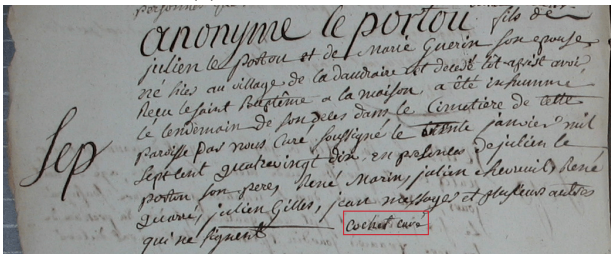 anonyme le portou fils de
julien le portou et de Marie Guerin son epouse
né hier au village de la daudraire est decedé tôt aprist avoir
Reçu le saint Baptême a la maison, a été inhumé
le lendemain de son deces dans le Cimetière de cette
Sep
paroisse par nous Curé, soussigné le trente janvier mil
sept cent quatre vingt dix en presence de julien le
portou son pere, René Marin, julien chevreuil, René
guarré, julien Gilles, jean messayes et plusieurs autres
qui ne signent cochet curé